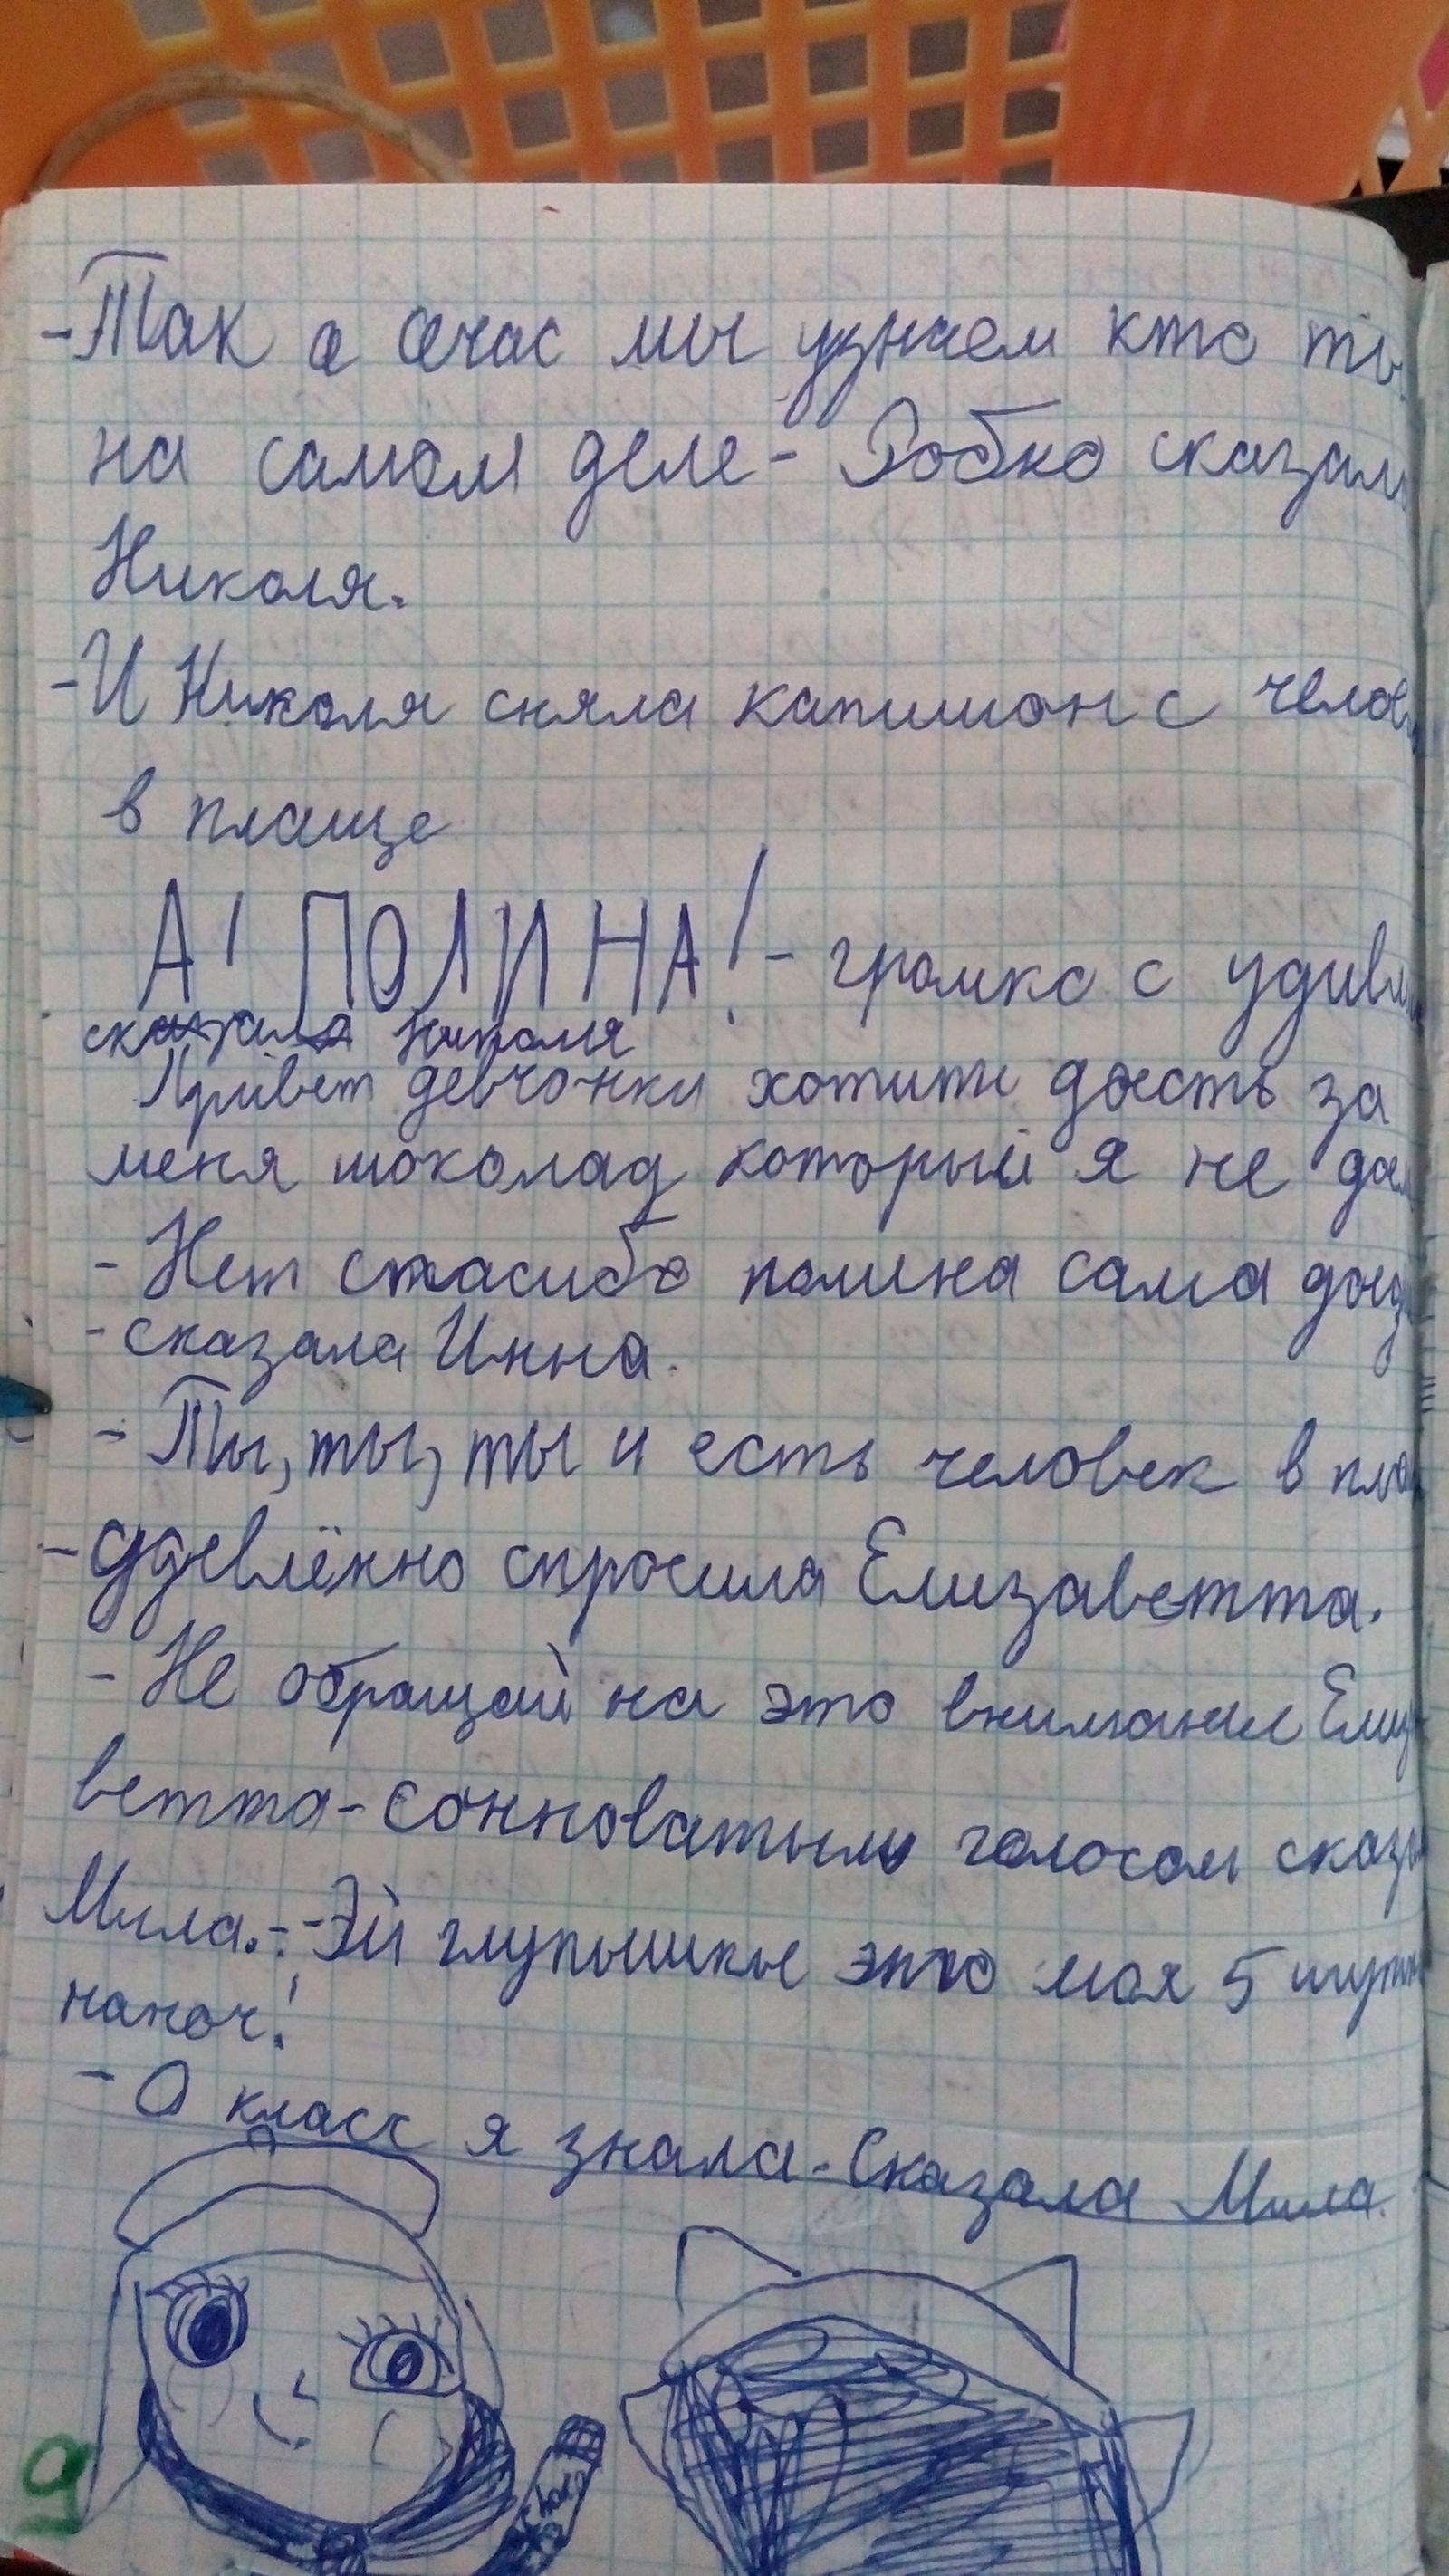 -Так а счас мы узнаем кто ты
на самом деле- Робко сказала
Николя.
-И Николя сняла капишон с челов
в плаще
А! ПОЛИНА!- громко с удивл
сказала Николя
Привет девчонки хотите доесть за
меня шоколад который я не дое
- Нет спасибо полина сама доед
-сказала Инна.
- Ты, ты, ты и есть человек в пла
-Удевлённо спросила Елизаветта.
- Не обращай на это внимания Елиз
ветта-сонноватым голосом сказа
Мила.- -Эй глупышки это моя 5 шутк
наноч!
- О класс я знала-Сказала Мила.
9